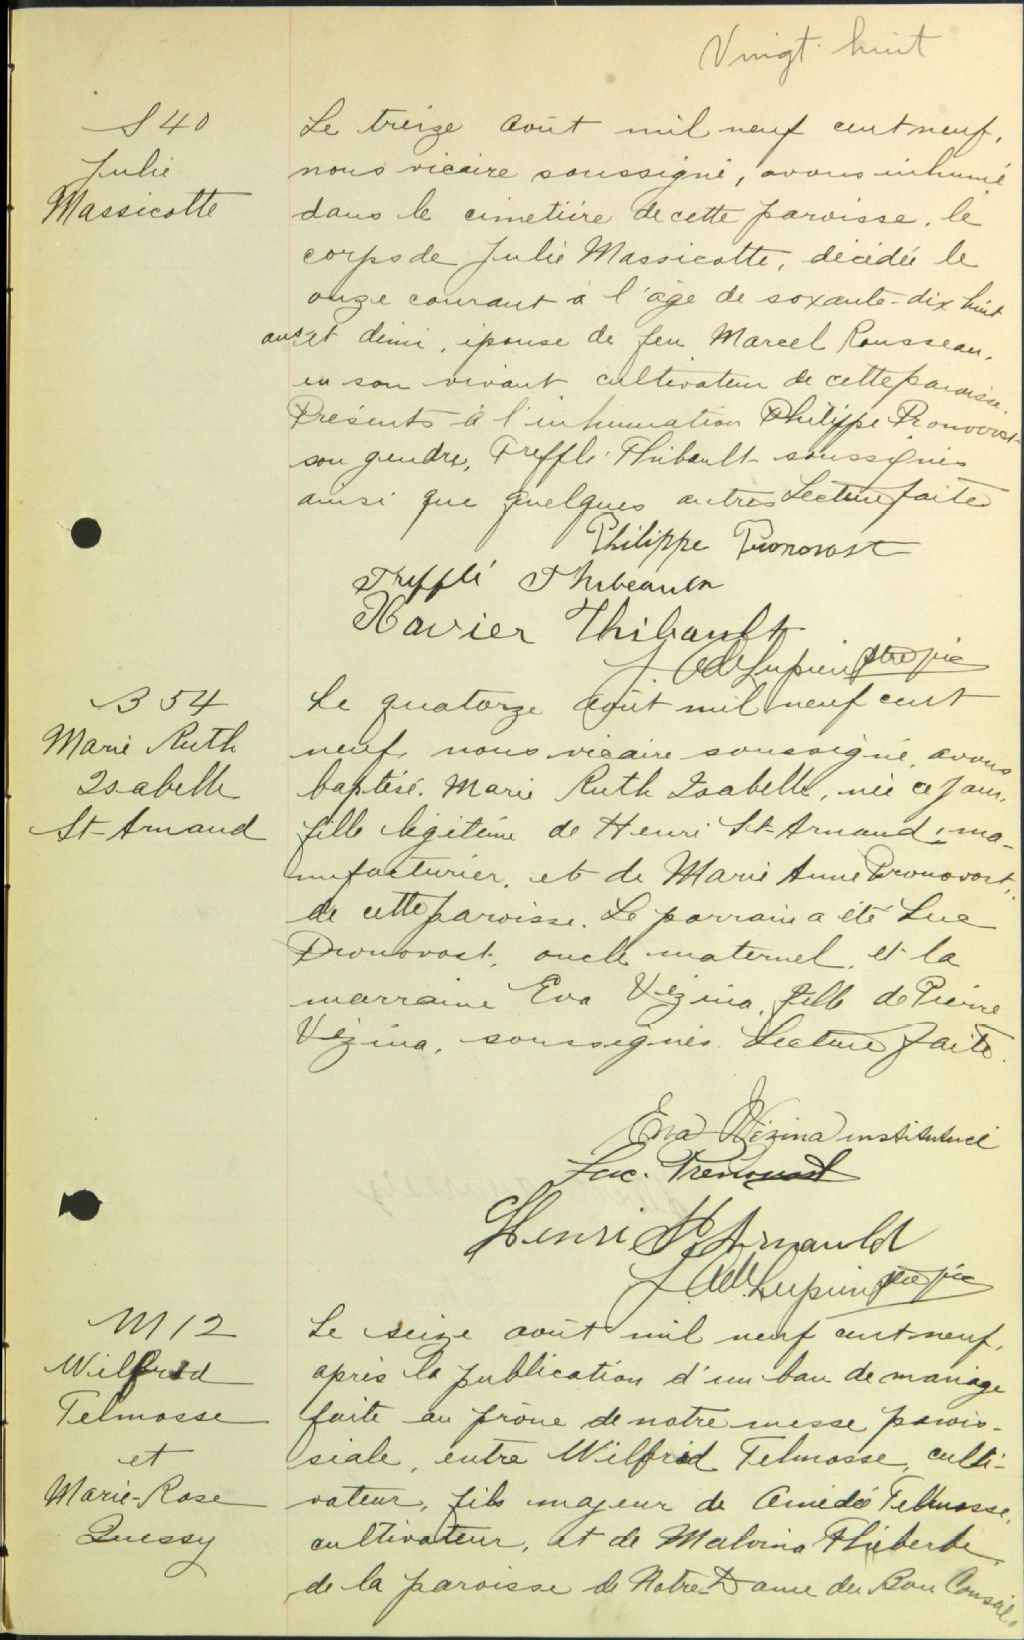 Vingt-huit
S 40
Julie
Massicotte
Le treize août mil neuf cent neuf,
nous vicaire soussigné, avons inhumé
dans le cimetière de cette paroisse, le
corps de Julie Massicotte, décédée le
onze courant à l'âge de soxante-dix huit
ans et demi, épouse de feu Marcel Rousseau,
en son vivant cultivateur de cette paroisse.
Présents à l'inhumation Philippe Pronovost
son gendre, Trefflé Thibault soussignés
ainsi que quelques autres Lecture faite
Philippe Pronovost
Trefflé Thibeault
Xavier Thibault
J. Ad. Lupien ptre vic
B 54
Marie Ruth
Isabelle
St-Arnaud
Le quatorze août mil neuf cent
neuf, nous vicaire soussigné, avons
baptisé Marie Ruth Isabelle, née ce jour,
fille légitime de Henri St-Arnaud, ma-
nufacturier, et de Marie Anne Pronovost,
de cette paroisse. Le parrain a été Luc
Pronovost, oncle maternel, et la
marraine Eva Vézina, fille de Pierre
Vézina, soussignés. Lecture faite.
Eva Vézina institutrice
Luc. Pronovost
Henri St Arnauld
J. Ad. Lupien ptre vic
M 12
Wilfrid
Telmosse
et
Marie-Rose
Quessy
Le seize août mil neuf cent neuf,
après la publication d'un ban de mariage
faite au prône de notre messe parois-
siale, entre Wilfrid Telmosse, culti-
vateur, fils majeur de Amédée Telmosse,
cultivateur, et de Malvina
de la paroisse de Notre-Dame du Bon Conseil,